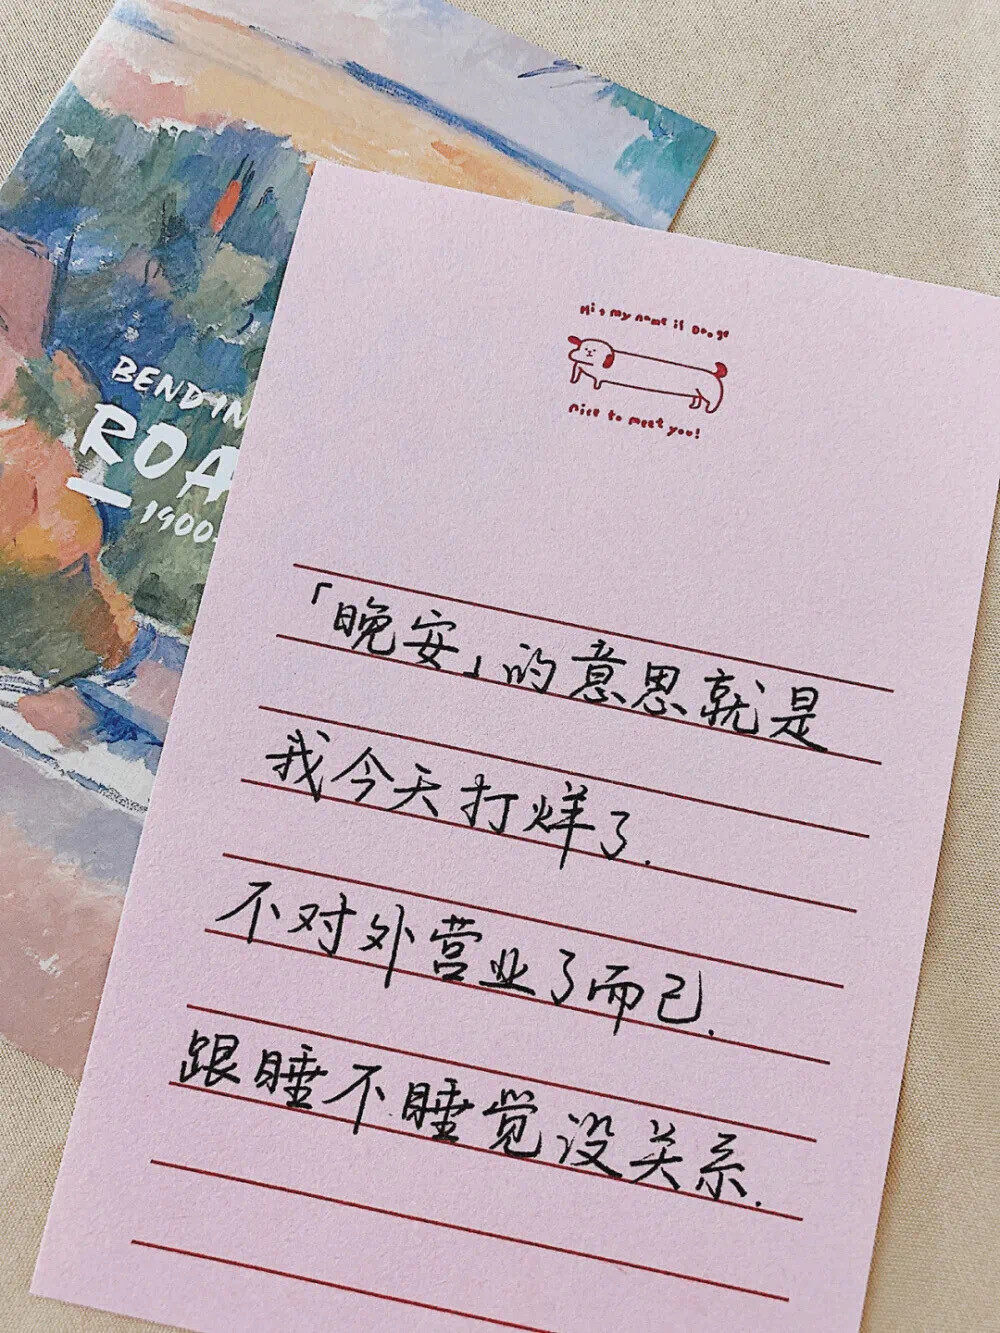 BENDIN
ROA
1900-
Hi, my name is Dooge
nice to meet you!
「晚安」的意思就是
我今天打烊了.
不对外营业了而已.
跟睡不睡觉没关系.